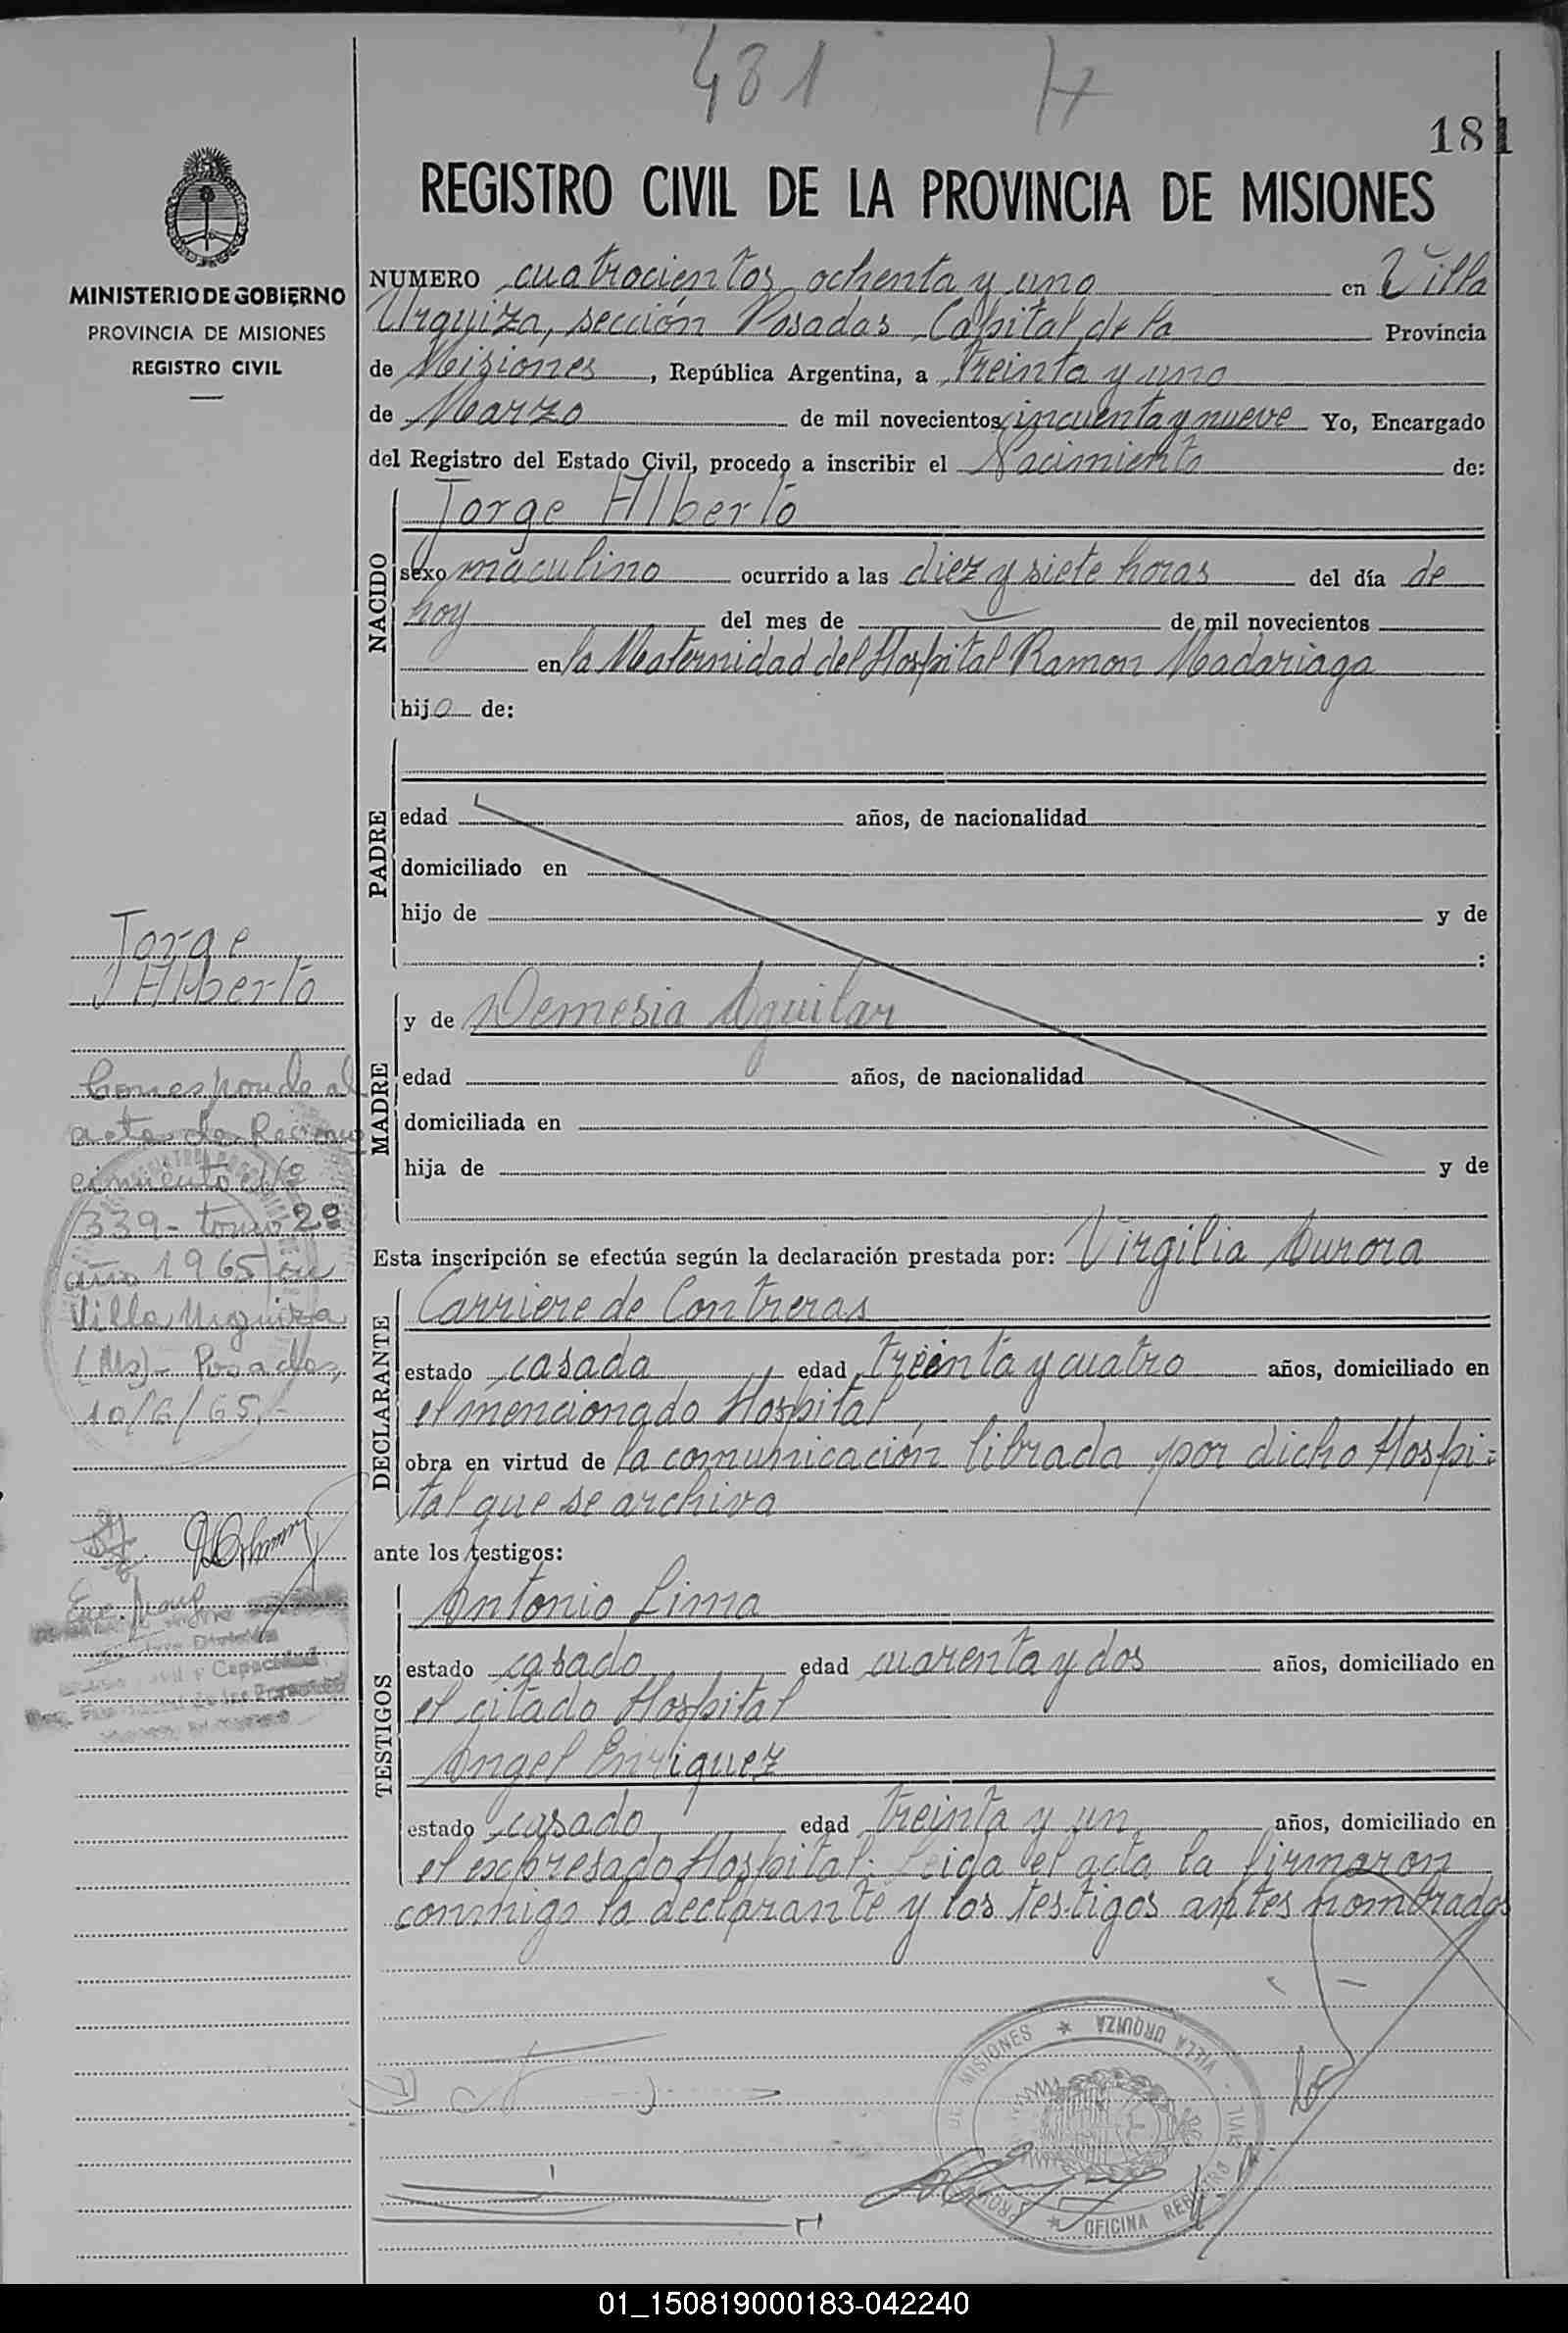 481
181
REGISTRO CIVIL DE LA PROVINCIA DE MISIONES
MINISTERIO DE GOBIERNO
PROVINCIA DE MISIONES
REGISTRO CIVIL
NUMERO cuatrocientos ochenta y uno en Villa
Urquiza, sección Posadas Capital de la Provincia
de Misiones, República Argentina, a treinta y uno
de Marzo de mil novecientos cincuenta y nueve Yo, Encargado
del Registro del Estado Civil, procedo a inscribir el Nacimiento de:
NACIDO
Jorge Alberto
sexo maculino ocurrido a las diez y siete horas del día de
hoy del mes de de mil novecientos
en la Maternidad del Hospital Ramon Madariaga
hijo de:
PADRE
edad años, de nacionalidad
domiciliado en
hijo de y de
:
MADRE
y de Demesia Aguilar
edad años, de nacionalidad
domiciliada en
hija de y de
Esta inscripción se efectúa según la declaración prestada por: Virgilia Aurora
DECLARANTE
Carriere de Contreras
estado casada edad treinta y cuatro años, domiciliado en
el mencionado Hospital
obra en virtud de la comunicación librada por dicho Hospi-
tal que se archiva
ante los testigos:
TESTIGOS
Antonio Lima
estado casado edad cuarenta y dos años, domiciliado en
el citado Hospital
Angel Enriquez
estado casado edad treinta y un años, domiciliado en
el expresado Hospital. Leida el acta la firmaron
conmigo la declarante y los testigos antes nombrados
Jorge
Alberto
Corresponde al
acta de Recono
cimiento Nº
339- tomo 2º
año 1965 en
Villa Urquiza
(Ms)- Posadas,
10/6/65.-
MISIONES * VILLA URQUIZA
OFICINA REGISTRO CIVIL
01_150819000183-042240